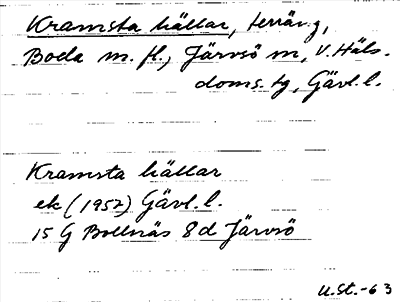 Kramsta hällar, terräng,
Boda m. fl., Järvsö sn, V. Häls.
doms. tg, Gävl. l.
Kramsta hällar
ek (1957) Gävl. l.
15 G Bollnäs 8d Järvsö
U.St.-63